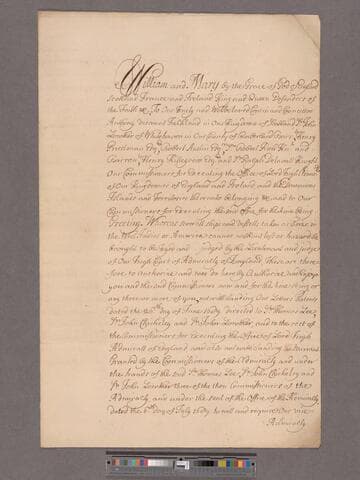 William and Mary by the Grace of God of England
Scotland France and Ireland King and Queen Defenders of
the Faith &c. To Our Truly and Welbeloved Cousin and Councellor
Anthony Viscount Falkland in Our Kingdome of Scotland Sr. John
Lowther of Whitehaven in Our County of Cumberland Henry
Priestman Esqr. Robert Austen Esqr. Sr. Robert Rich Knt. and
Henry Killegrew Esqr. and Sr. Ralph Delavall Knight
Our Commissioners for Executing the Office of Lord High
of Our Kingdomes of England and Ireland and the Dominions
Islands and Territories thereunto belonging and to Our
Commissioners for Executing the said Office for the time being
Greeting Whereas Ships and Vessells taken as Prize in
the West Indies or America can not without loss or hazard be
brought to be tryed and judged by the Lieutenant and judge
of Our High Court of Admiralty of England These are there
fore to Authorize and wee do hereby Authorize
you and the said Commissioners now and for the time being or
any three or more of you notwithstanding Our Letters Patents
dated the day of June directed to Sr. Thomas Lee
Sr. John Chicheley and Sr. John Lowther and to the rest of
the Commissioners for executing the Office of Lord High
Admirall of England and also notwithstanding the
Granted by the Commissioners of the Admiralty and under
the hands of the said Sr. Thomas Lee Sr. John Chicheley and
Sr. John Lowther three of the then Commissioners of the
Admiralty and under the seal of the Office of the Admiralty
dated the day of July to will and require Our vice
Admiralty